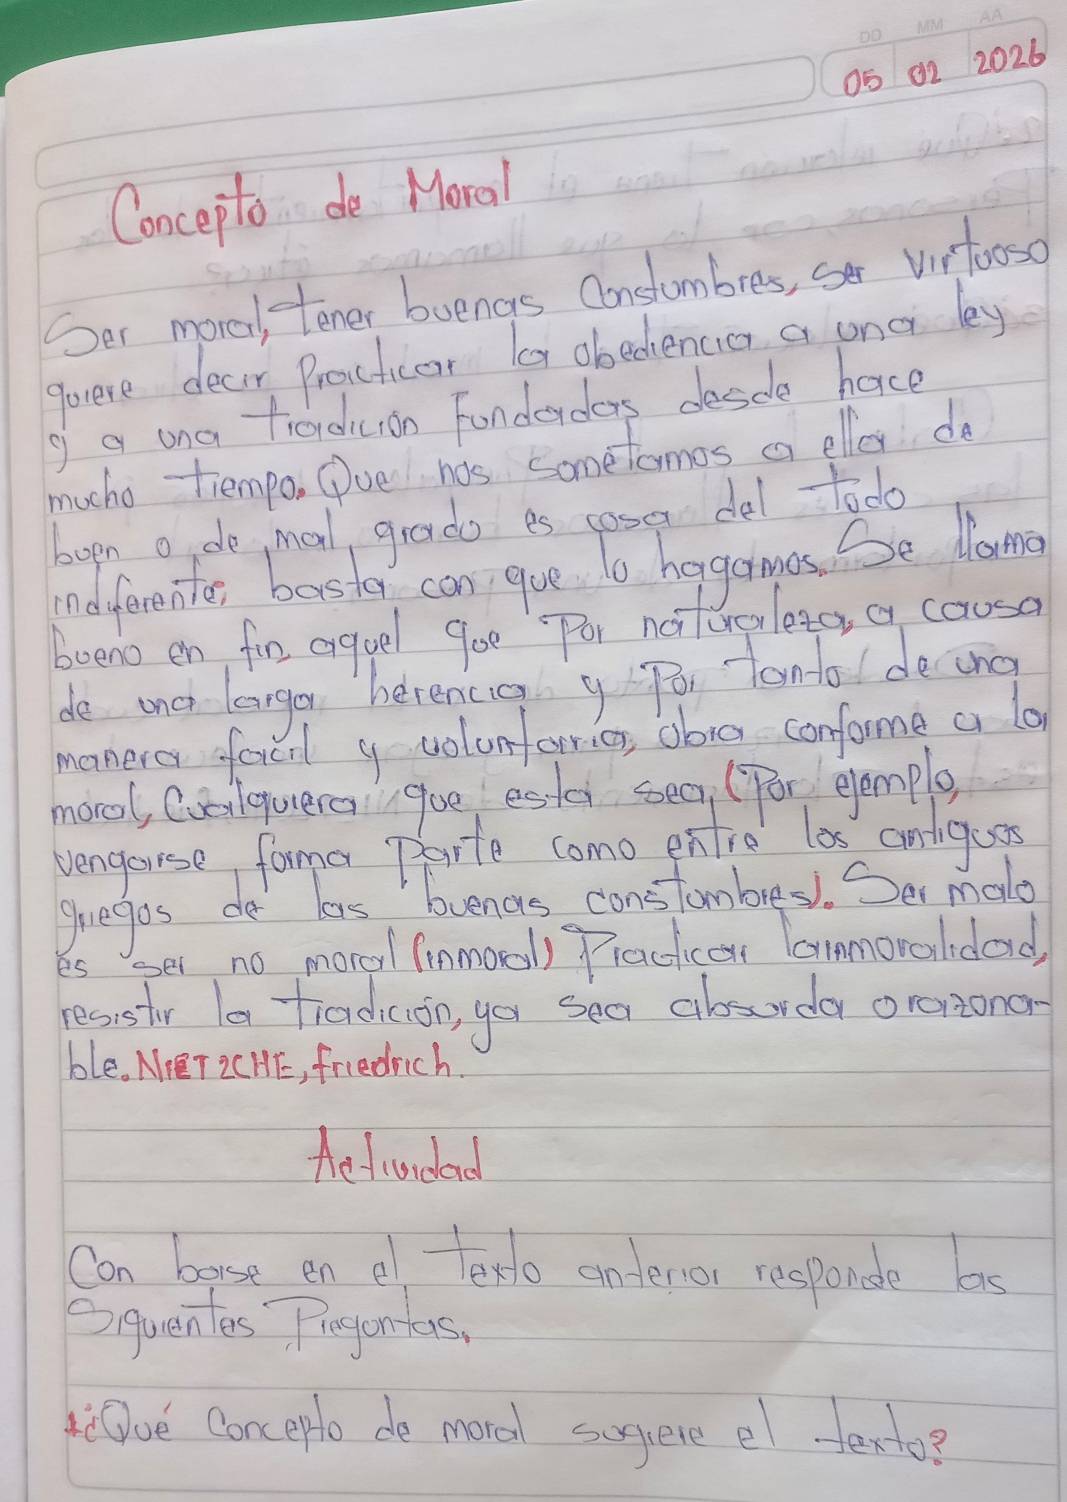 DD MM AA
05 02 2026
Concepto de Moral
Ser moral, tener buenas Constumbres, ser virtuoso
quiere decir Practicar la obediencia a una ley
y a una tradicion Fundadas desde hace
mucho tiempo. Que nos sometamos a ella de
buen o de mal, grado es cosa del todo
indiferente; basta con que lo hagamos. Se llama
bueno en fin, aquel que Por naturaleza, a causa
de una larga herencia y Por tanto de una
manera facil y voluntarria, obra conforme a la
moral, Cualquiera que esta sea, (Por ejemplo,
vengarse, forma Parte como entre los antiguos
griegos de las buenas constumbres). Ser malo
es ser no moral (inmoral) Practicar la inmoralidad,
resistir la tradición, ya sea absurda o razona-
ble. NIETZCHE, friedrich.
Actividad
Con base en el texto anterior responde las
Siguientes Preguntas.
*¿Qué Concepto de moral sugiere el texto?